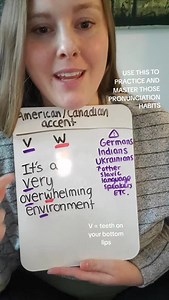 USE THIS TO
PRACTICE AND
MASTER THOSE
PRONUNCIATION
HABITS
American/Canadian
accent
V W
It's a
very
overwhelming
environment
Germans
Indians
Ukrainians
+ other
slavic
language
speakers
ETC.
V = teeth on
your bottom
lips